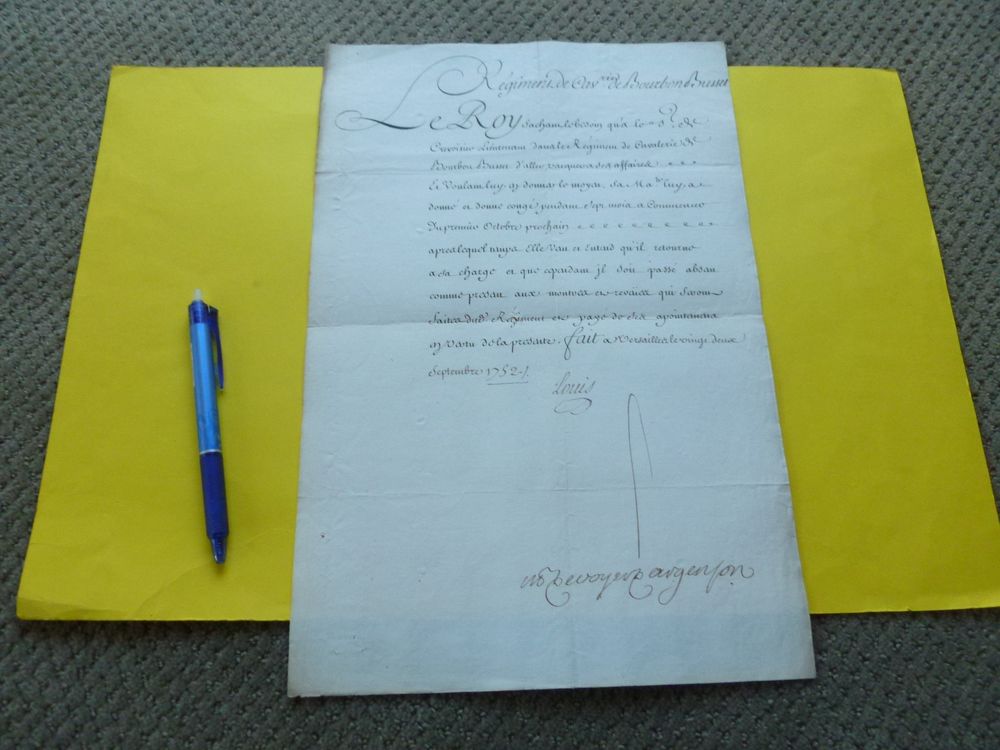 Régiment de Cav.rie de Bourbon Busset
Le Roy Sachant le besoin qu'a le S.r de
Lieutenant dans le Régiment de Cavalerie de
Bourbon Busset d'aller vacquer a ses affaires
Et Voulant luy en donner le moyen, Sa Ma.té luy a
donné et donne congé pendant Sept mois a Commencer
Du premier Octobre prochain
apres lequel temps Elle Veut et Entend qu'il retourne
a sa charge et que cependant il Soit passé absent
comme present aux montres et reveües qui Seront
faites dud. Régiment et payé de Ses apointemens
en vertu de la presente. fait a Versailles le vingt deux
Septembre 1752.
Louis
M P de voyer d'argenson